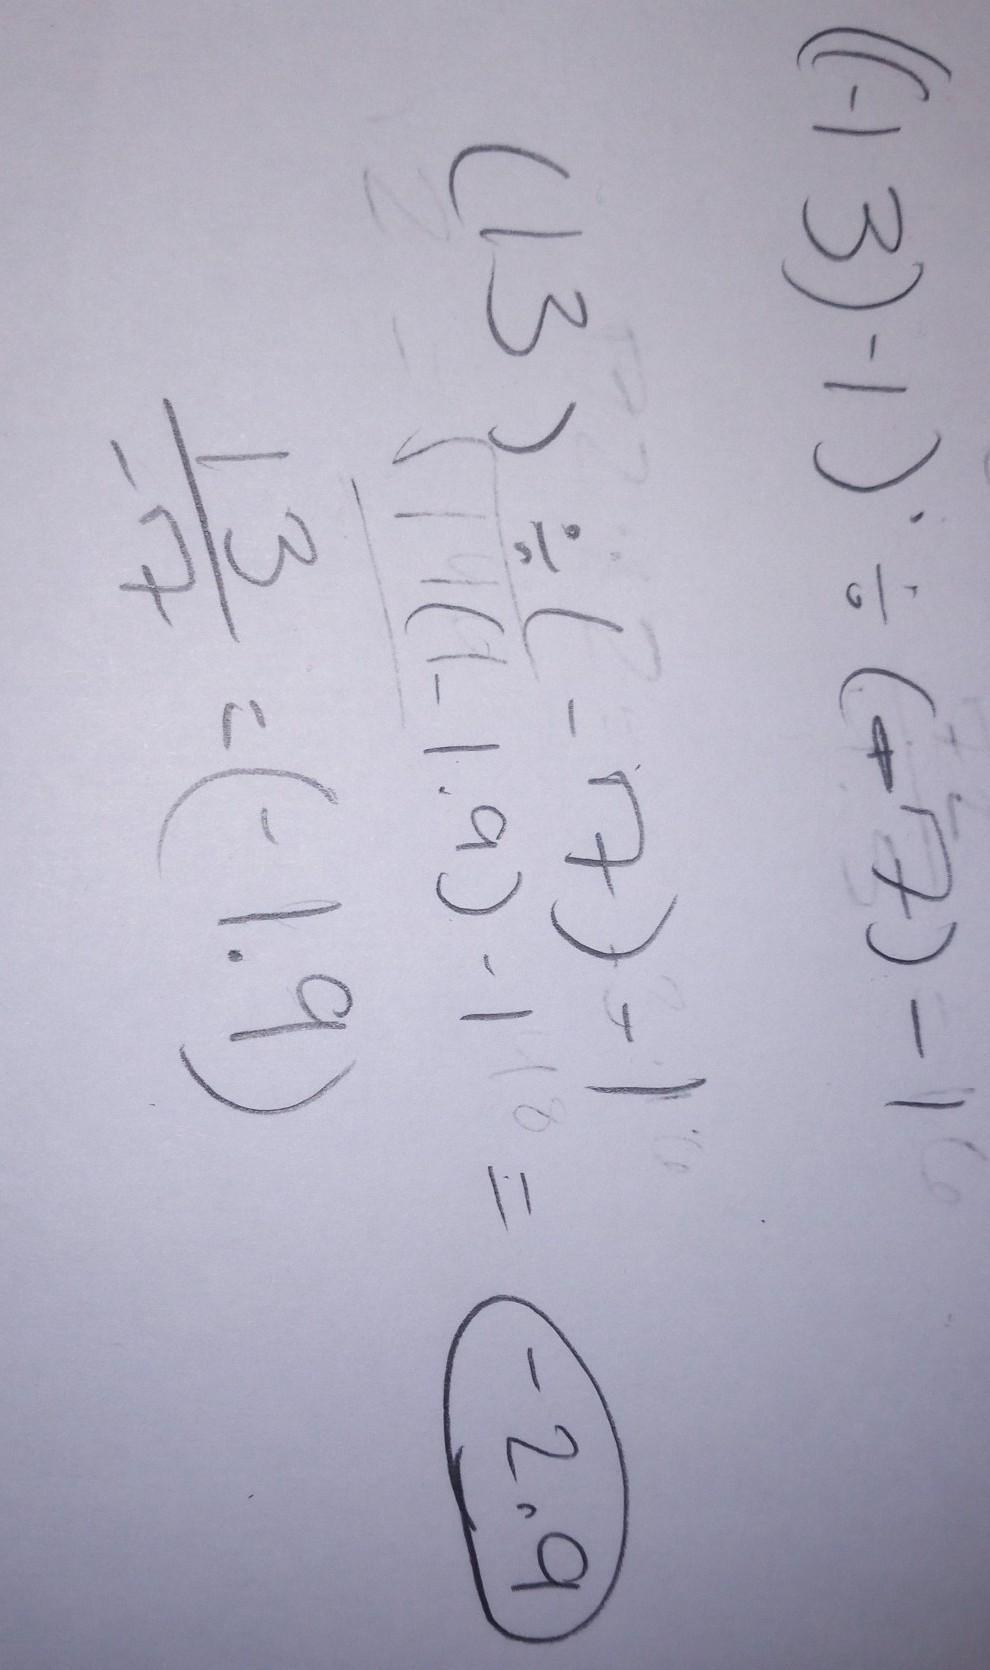 ((-13)-1) ÷ (-7) - 1
(13) ÷ (-7) - 1
(-1.9) - 1 = -2.9
13/-7 = (-1.9)